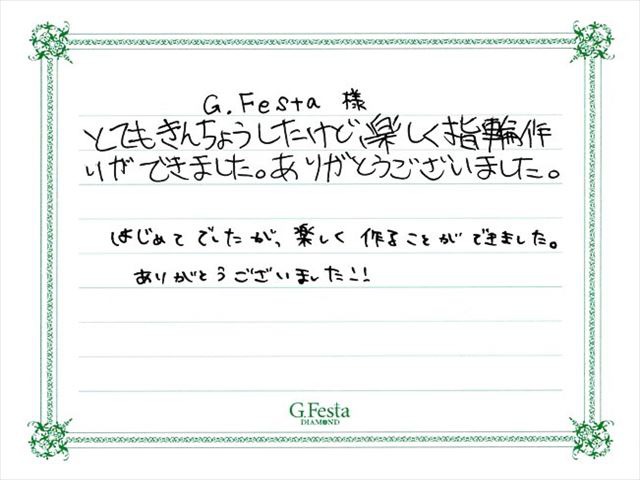 G.Festa 様
とてもきんちょうしたけど、楽しく指輪作
りができました。ありがとうございました。
はじめてでしたが、楽しく作ることができました。
ありがとうございました!!
G.Festa
DIAMOND